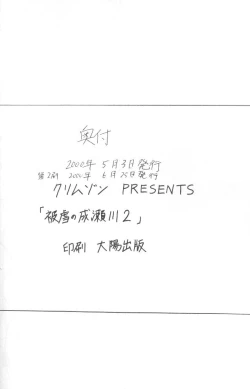 奥付
2000年 5月3日発行
第2刷 2000年 6月25日発行
クリムゾン PRESENTS
「被虐の成瀬川2」
印刷 大陽出版